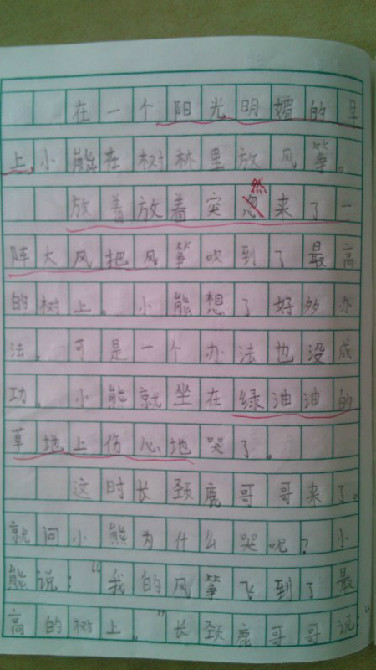 在一个阳光明媚的早
上,小能在树林里放风筝。
放着放着突然来了一
阵大风把风筝吹到了最高
的树上。小能想了好多办
法。可是一个办法也没成
功。小能就坐在绿油油的
草地上伤心地哭了。
这时长颈鹿哥哥来了。
就问小能为什么哭呢?小
能说:“我的风筝飞到了最
高的树上。”长颈鹿哥哥说“